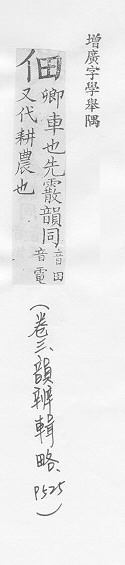 增廣字學舉隅
佃
卿車也先霰韻同音田音電
又代耕農也
(卷三、韻辨輯略、P525)